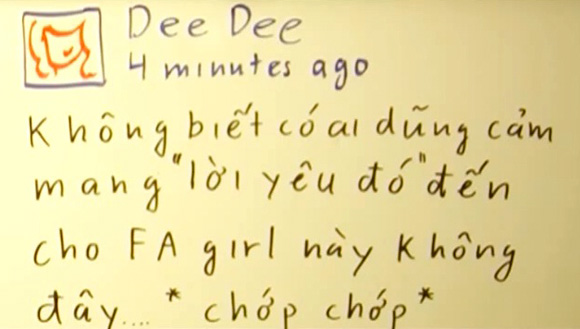 Dee Dee
4 minutes ago
Không biết có ai dũng cảm
mang "lời yêu đó" đến
cho FA girl này không
đây.... * chớp chớp *